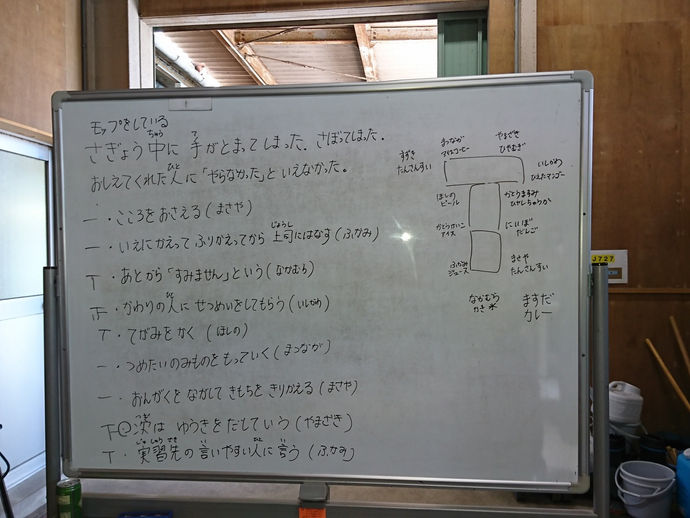 モップをしている
さぎょう中に 手がとまってしまった。さぼってしまった。
ちゅう
て
おしえてくれた人に「やらなかった」といえなかった。
ひと
一・こころをおさえる(まさや)
一・いえにかえって ふりかえってから 上司にはなす(ふかみ)
じょうし
T・あとから「すみません」という(なかむら)
正・かわりの人に せつめいをしてもらう(いしかわ)
ひと
T・てがみをかく(ほしの)
一・つめたいのみものをもっていく(まつなが)
一・おんがくを ながして きもちを きりかえる(まさや)
次は ゆうきをだしていう(やまざき)
つぎ
T・実習先の 言いやすい人に 言う(ふかみ)
じっしゅうさき
い
ひと
い
まつなが
アイスコーヒー
やまざき
ひやむぎ
すずき
たんさんすい
いしかわ
ひえたマンゴー
ほしの
ビール
かとうますみ
ひやしちゅうか
アイス
にいぼ
だんご
ふかみ
ジュース
まさや
たんさんすい
なかむら
かき氷
ますだ
カレー
J727